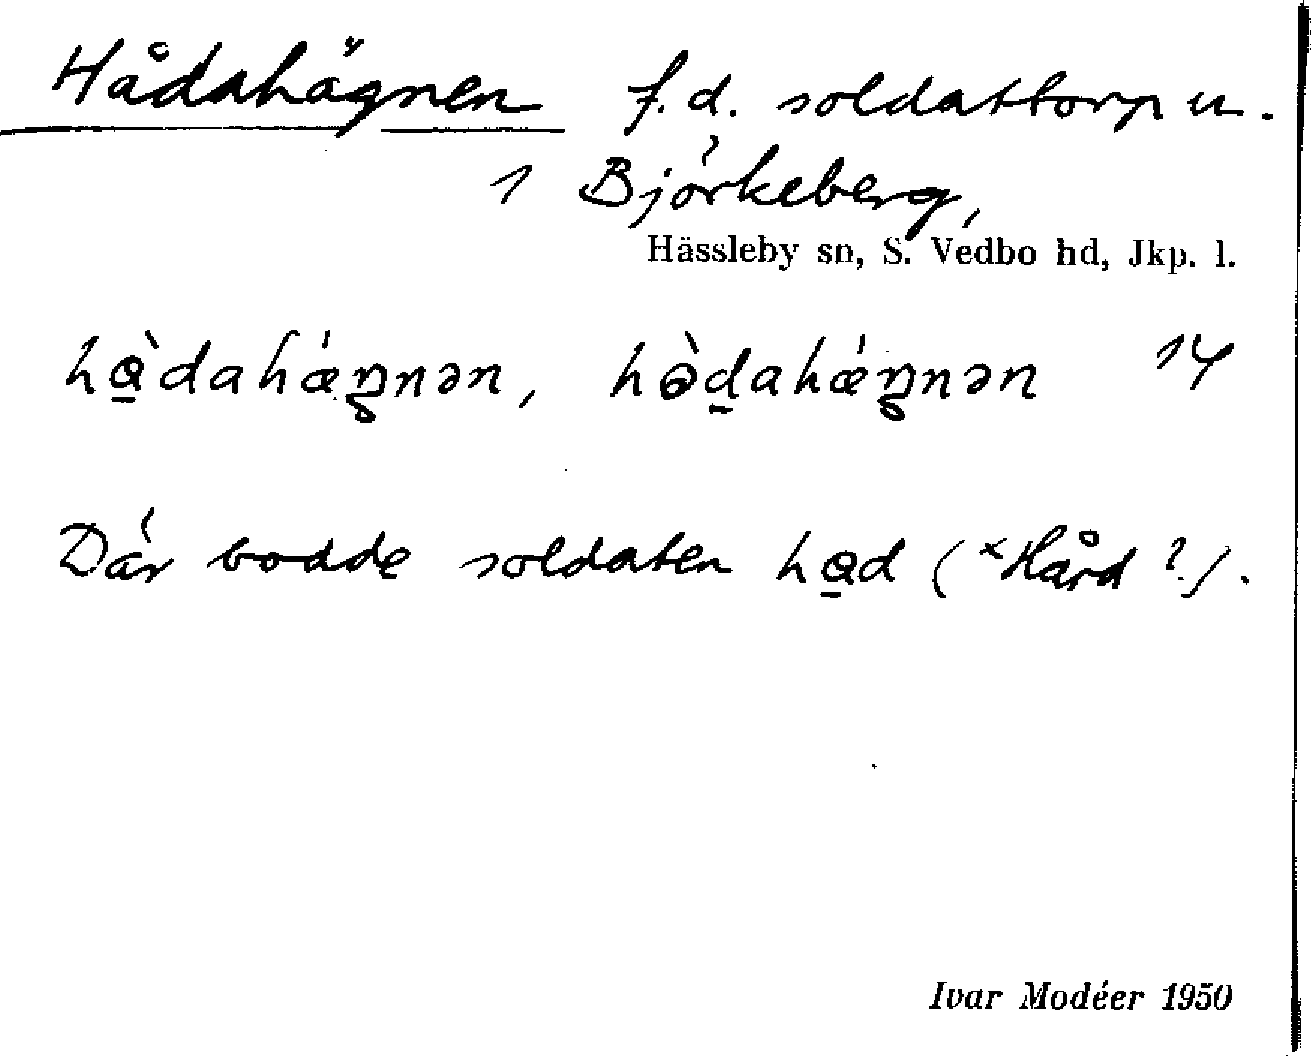 Hådahägnen f.d. soldattorp u.
1 Björkeberg,
Hässleby sn, S. Vedbo hd, Jkp. l.
hɷ̱̀dahǽŋnən, hɷ̀ḏahǽŋnən 14
Där bodde soldaten hɷ̱d (×Hård?).
Ivar Modéer 1950